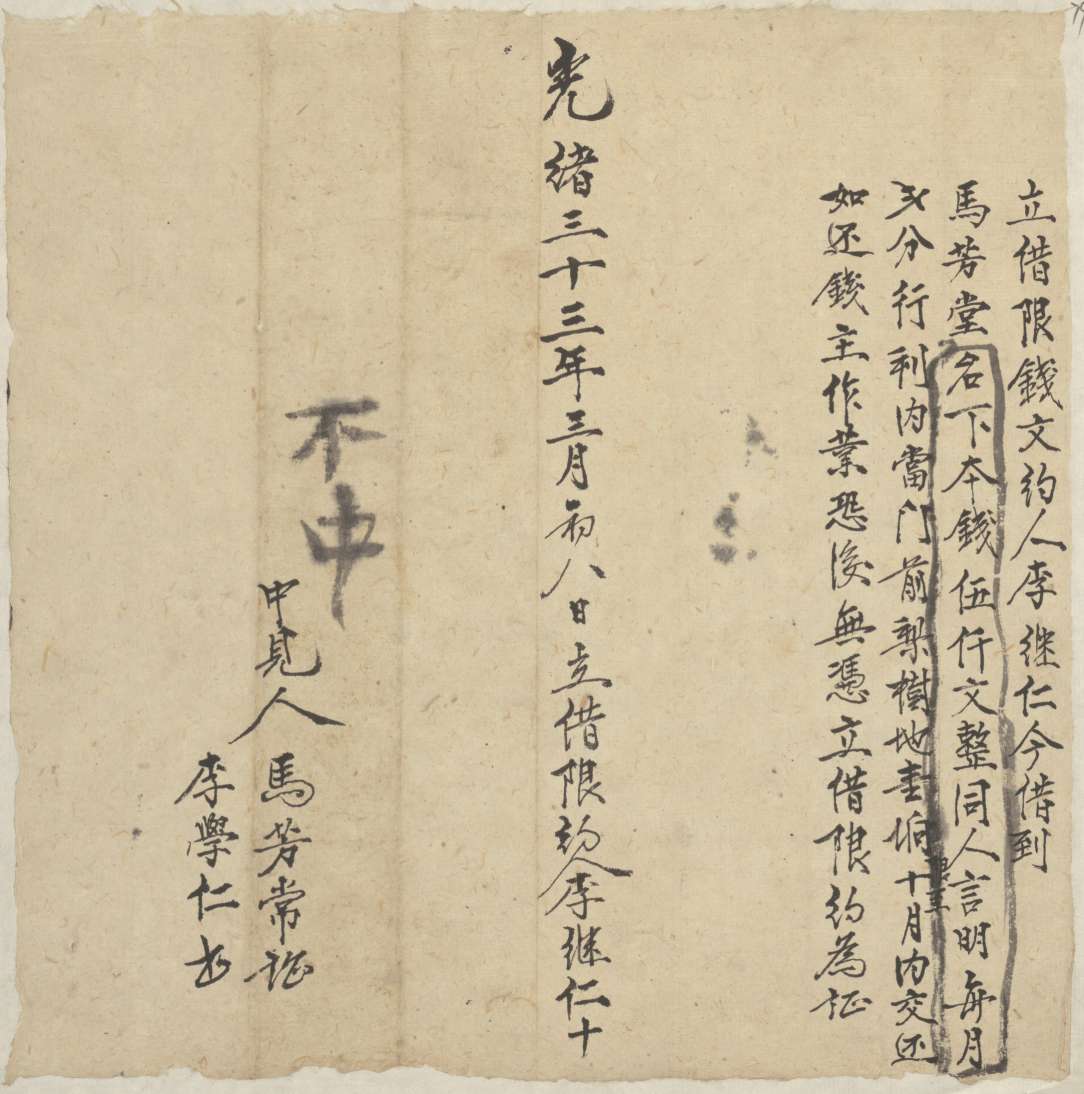 立借限錢文約人李継仁今借到
馬芳堂名下本錢伍仟文整同人言明每月
弍分行利内當門前梨樹地壹垧限至十月内交还
如还錢主作業恐後無憑立借限約為証
光緒三十三年三月初八日立借限約人李継仁十
不中
中見人
馬芳常証
李學仁